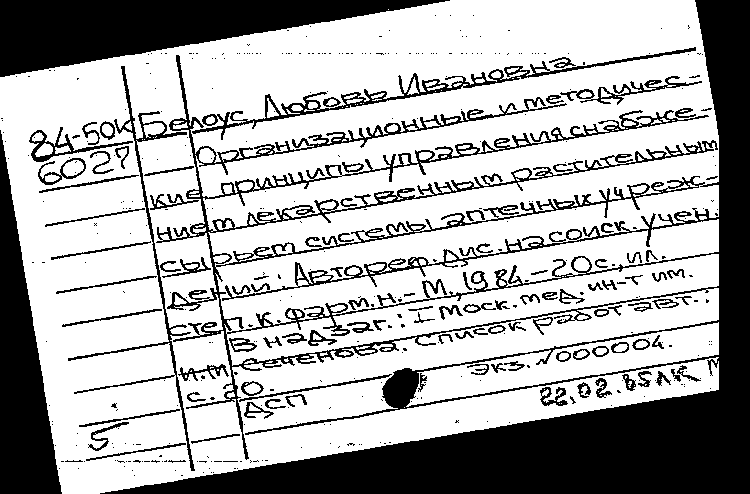 84-50К Белоус, Любовь Ивановна.
6027 Организационные и методичес-
кие принципы управления снабже-
нием лекарственным растительным
сырьем системы аптечных учреж-
дений: Автореф. дис. на соиск. учен.
степ. к. фарм. н. - М., 1984. - 20 с., ил.
В надзаг.: I Моск. мед. ин-т им.
И.М. Сеченова. Список работ авт.:
с. 20.
ДСП Экз. №000004.
5 22.02.85 ЛК М